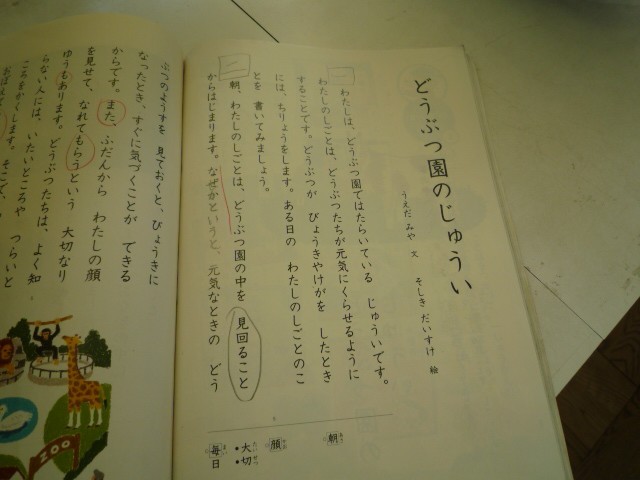 どうぶつ園のじゅうい
うえだ みや 文 そしき だいすけ 絵
一
わたしは、どうぶつ園ではたらいている じゅういです。
わたしのしごとは、どうぶつたちが元気にくらせるように
することです。どうぶつが びょうきやけがを したとき
には、ちりょうをします。ある日の わたしのしごとのこ
とを 書いてみましょう。
二
朝、わたしのしごとは、どうぶつ園の中を 見回ること
からはじまります。なぜかというと、元気なときの どう
ぶつのようすを 見ておくと、びょうきに
なったとき、すぐに気づくことが できる
からです。また、ふだんから わたしの顔
を見せて、なれてもらうという 大切なり
ゆうもあります。どうぶつたちは、よく知
らない人には、いたいところや つらいと
ころをかくします。そこで、
朝
顔
大切
たいせつ
毎日
ZOO